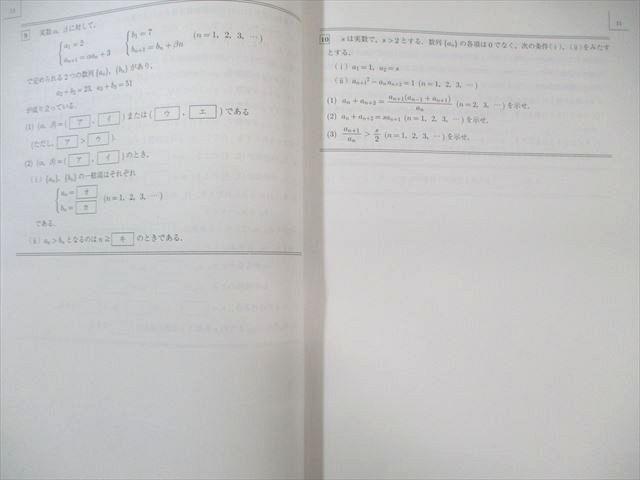 9 実数α, βに対して,
{a₁=2, aₙ₊₁=αaₙ+3 {b₁=7, bₙ₊₁=bₙ+βn (n=1, 2, 3, …)
で定められる2つの数列{aₙ}, {bₙ}があり,
a₂+b₂=23, a₃+b₃=51
が成り立っている.
(1) (α, β)=( ア , イ ) または ( ウ , エ ) である
(ただし, ア > ウ ).
(2) (α, β)=( ア , イ ) のとき,
(i) {aₙ}, {bₙ}の一般項はそれぞれ
{aₙ= オ
bₙ= カ (n=1, 2, 3, …)
である.
(ii) aₙ>bₙとなるのはn≧ キ のときである.
10 sは実数で, s>2とする. 数列{aₙ}の各項は0でなく, 次の条件(i), (ii)をみたす
とする.
(i) a₁=1, a₂=s
(ii) aₙ₊₁²−aₙaₙ₊₂=1 (n=1, 2, 3, …)
(1) aₙ+aₙ₊₂=aₙ₊₁(aₙ₋₁+aₙ₊₁)/aₙ (n=2, 3, …) を示せ.
(2) aₙ+aₙ₊₂=saₙ₊₁ (n=1, 2, 3, …) を示せ.
(3) aₙ₊₁/aₙ > s/2 (n=1, 2, 3, …) を示せ.